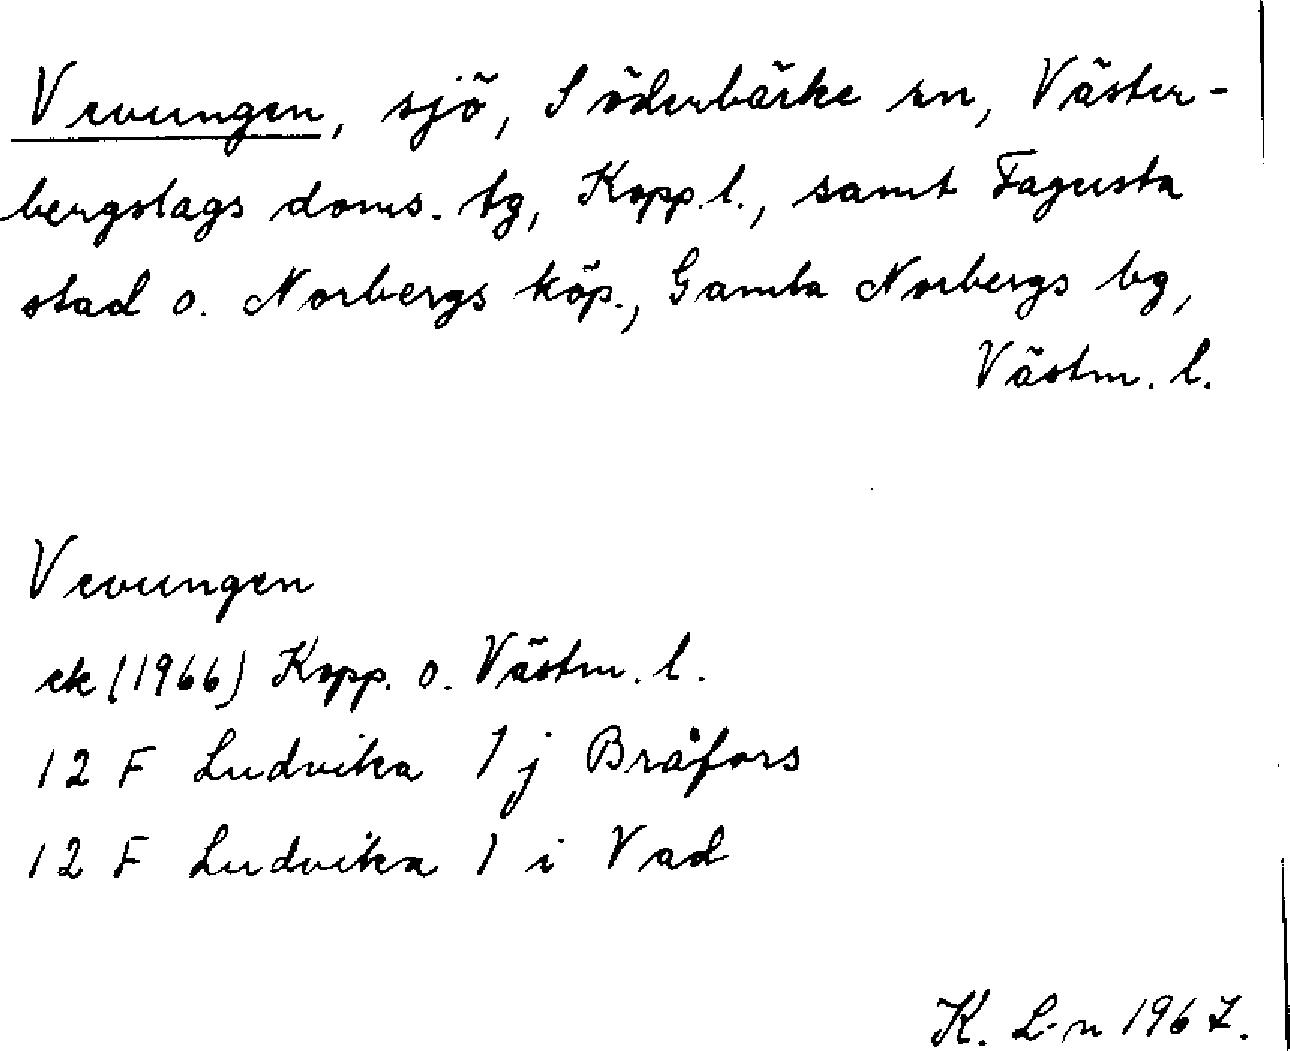 Vevungen, sjö, Söderbärke sn, Väster-
bergslags doms. tg, Kopp.l., samt Fagersta
stad o. Norbergs köp., Gamla Norbergs bg,
Västm. l.
Vevungen
ek (1966) Kopp. o. Västm. l.
12 F Ludvika 1 j Bråfors
12 F Ludvika 1 i Vad
K. L-n 1967.